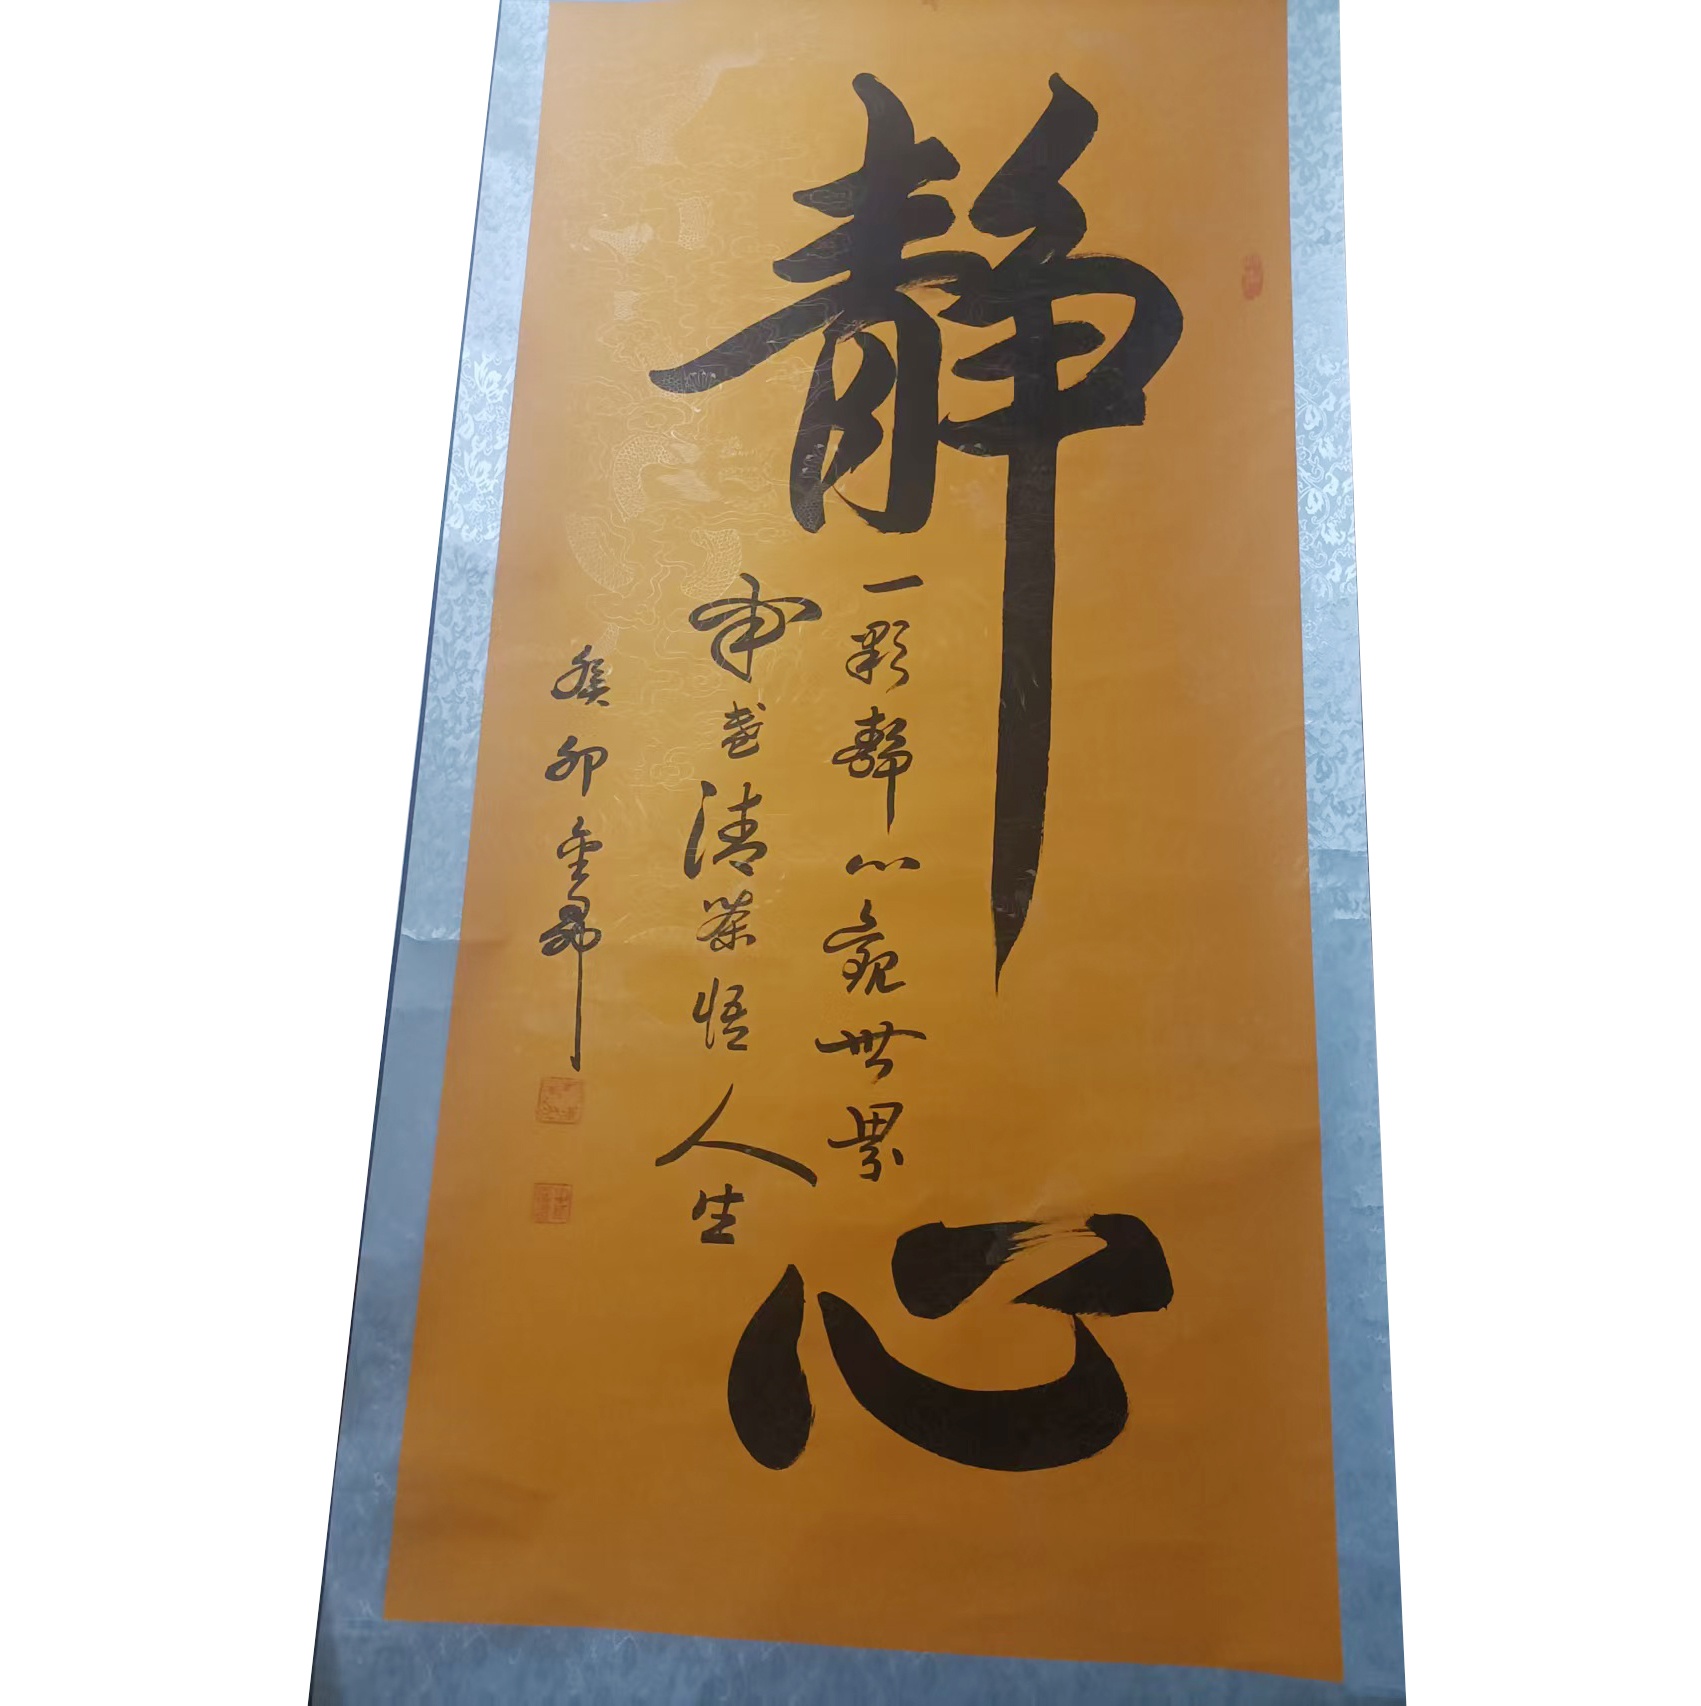 静心
一颗静心观世界
半盏清茶悟人生
癸卯金昂